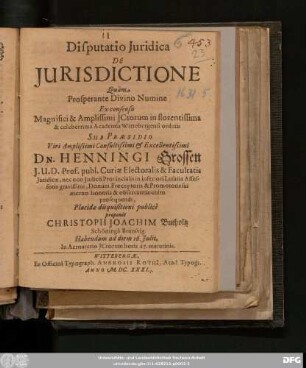 Disputatio Juridica
DE
JURISDICTIONE
Quam
Prosperante Divino Numine
Ex consensu
Magnifici & Amplissimi JCtorum in florentissima
& celeberrima Academia Wittebergensi ordinis
SUB PRÆSIDIO
Viri Amplissimi Consultissimi & Excellentissimi
DN. HENNINGI Grossen
J.U.D. Prof. publ. Curiæ Electoralis & Facultatis
Juridicæ, nec non Judicii Provincialis in Inferiori Lusatia Assessoris gravissimi, Domini Præceptoris & Promotoris sui
Placidæ disquisitioni publicè
proponit
CHRISTOPH JOACHIM Buchholtz
Habendam ad diem 16. Julii,
In Acroaterio JCtorum horis
WITTEBERGÆ,
Ex Officinâ Typograph. AMBROSII ROTHI, Acad. Typogr.
ANNO M. DC. XXXI.